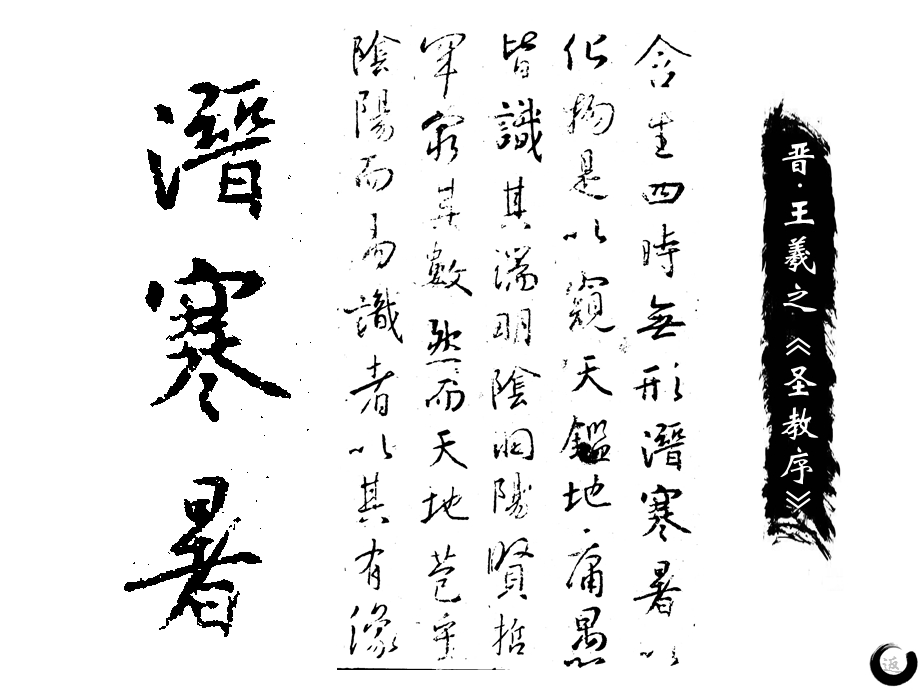 晋·王羲之《圣教序》
含生四時無形潛寒暑以
化物是以窺天鑑地庸愚
皆識其端明陰洞陽賢哲
罕窮其數然而天地苞乎
陰陽而易識者以其有像
潛寒暑
返